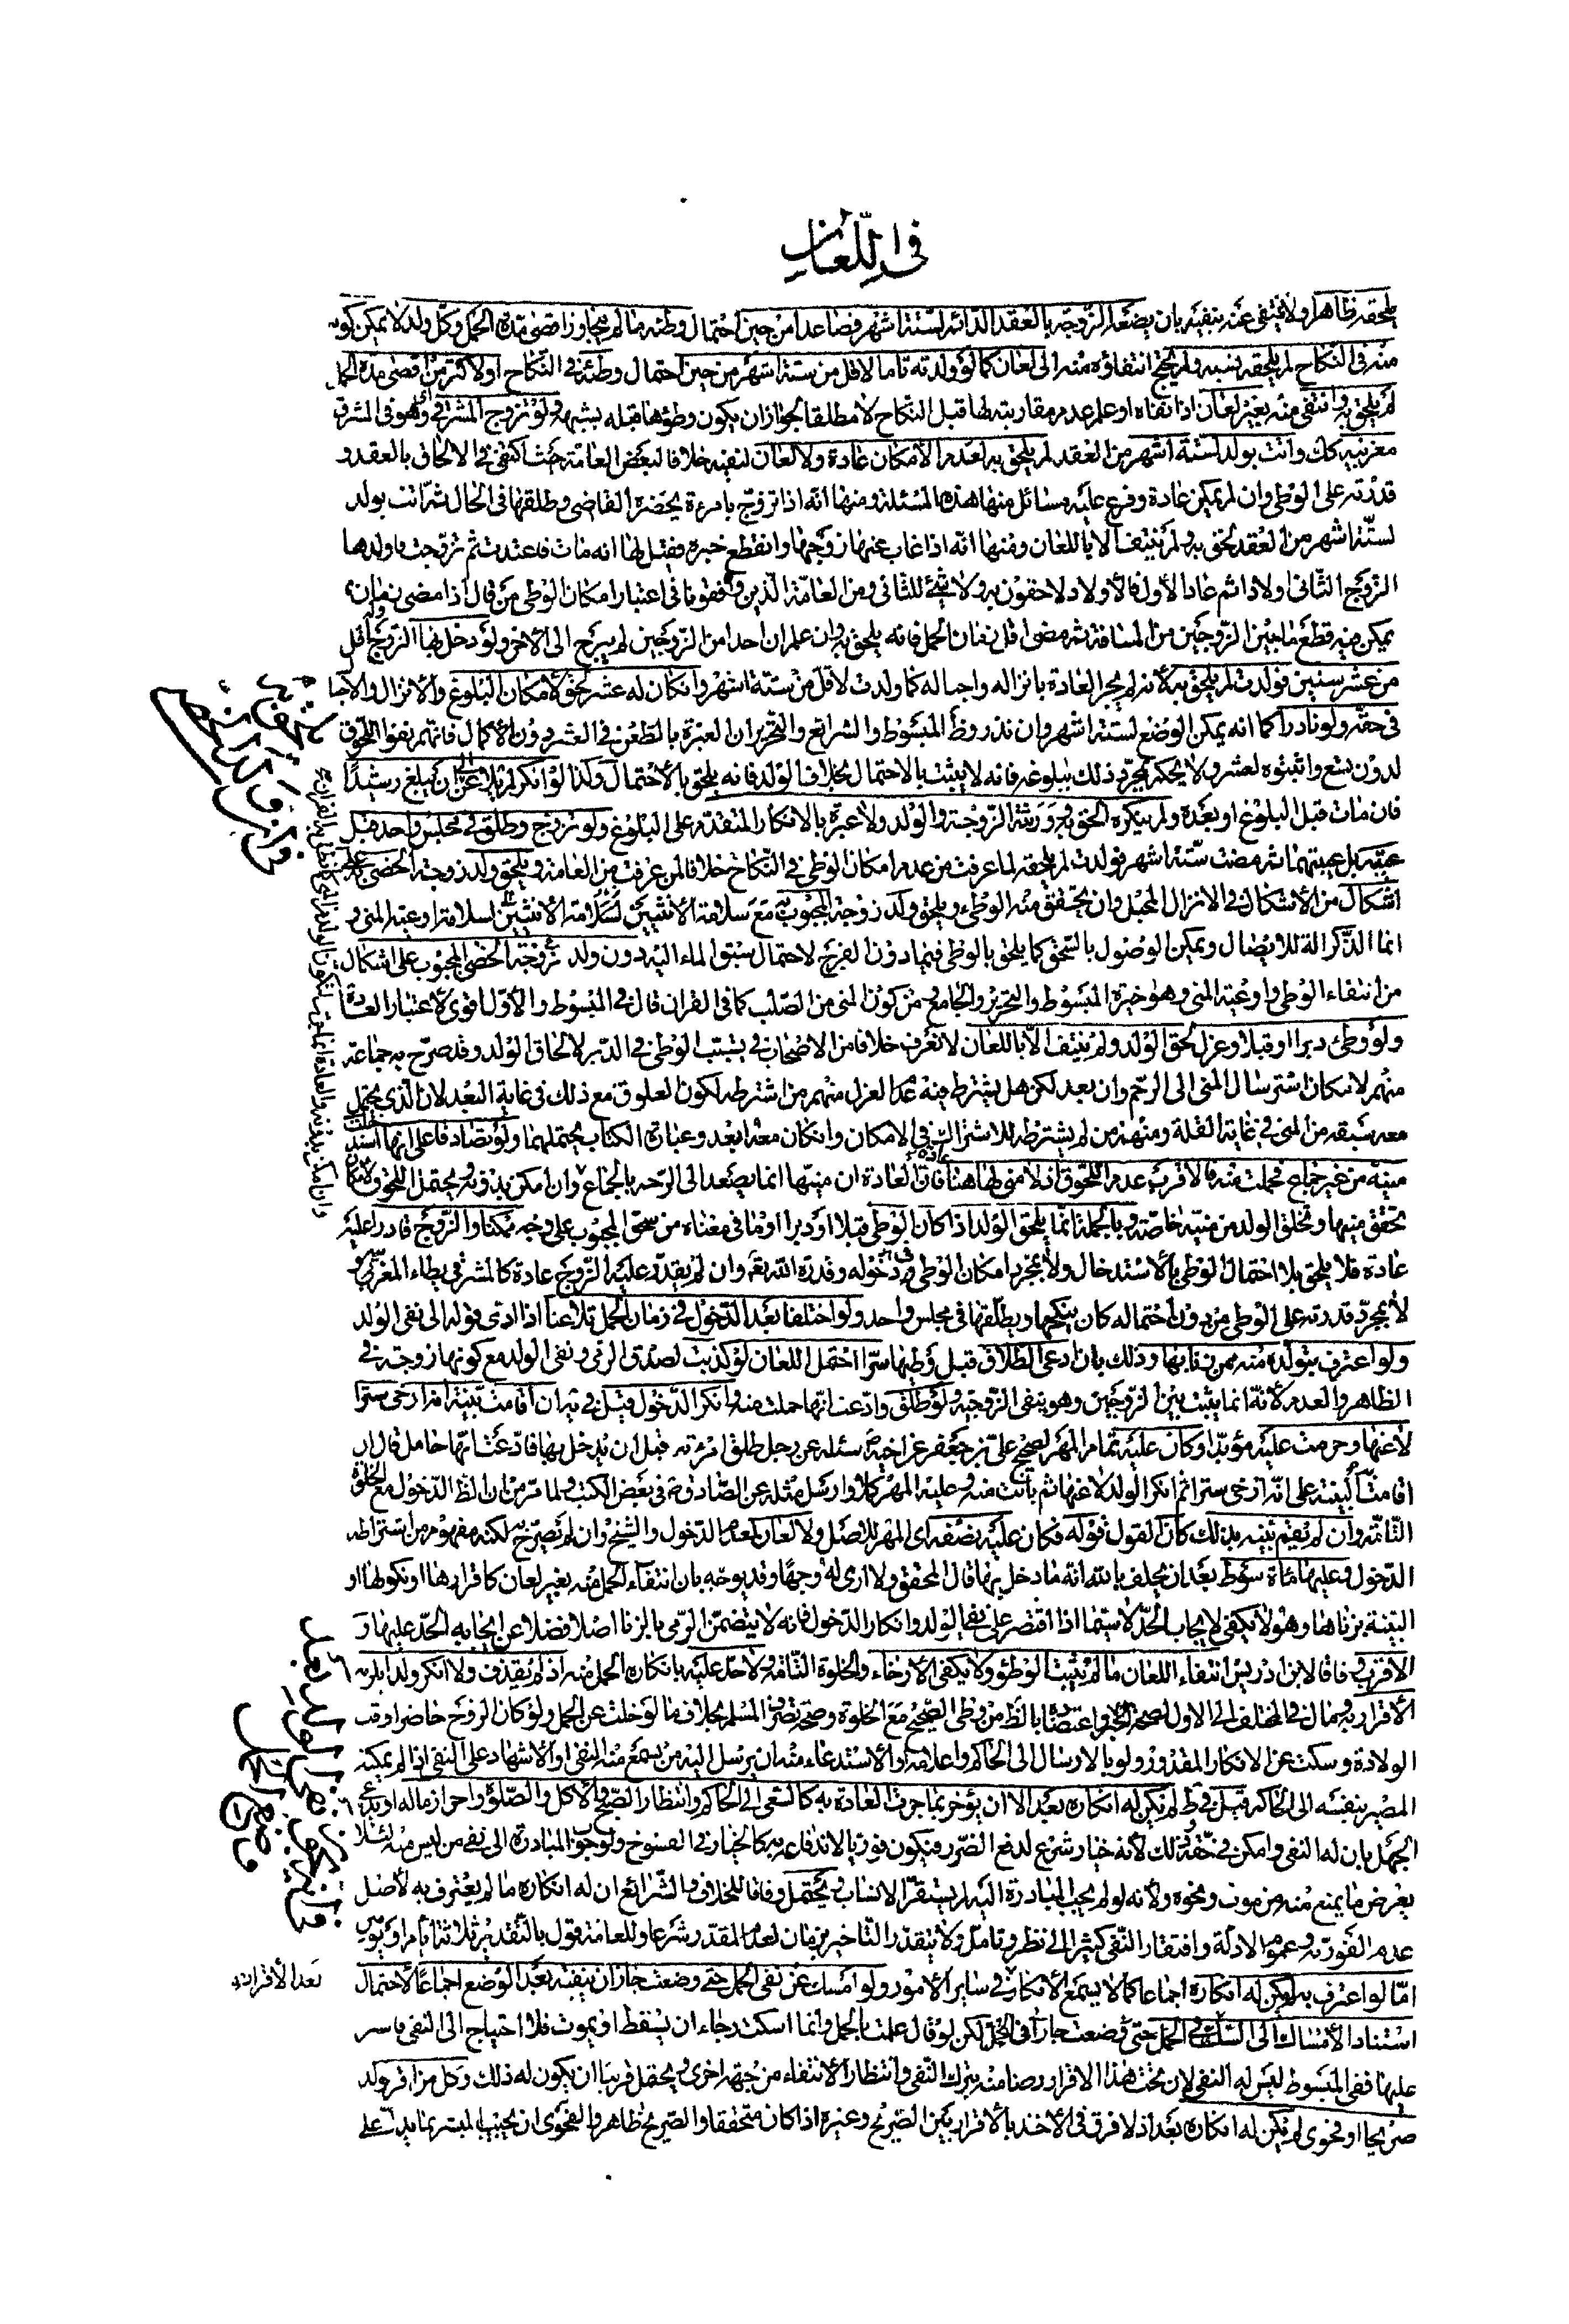 في اللعان
يلحقه ظاهرا ولا ينتفى عنه بنفيه بان يضعه الزوجة بالعقد الدائم لستة اشهر فصاعدا من حين احتمال وطئه ما لم يتجاوز اقصى مدة الحمل وكل ولد لا يمكن كونه
منه في النكاح لم يلحقه نسبه ولم يحتج انتفاؤه منه الى لعان كما لو ولدته تاما لاقل من ستة اشهر من حين احتمال وطئه في النكاح او لاكثر من اقصى مدة الحمل
لم يلحق به وانتفى منه بغير لعان اذا نفاه او علم عدم مقاربته لها قبل النكاح لا مطلقا لجواز ان يكون وطؤها قبله بشبهة ولو تزوج المشرقي وهو في المشرق
مغربية كك واتت بولد لستة اشهر من العقد لم يلحق به لعدم الامكان عادة ولا لعان لنفيه خلافا لبعض العامة حيث اكتفى في الالحاق بالعقد و
قدرته على الوطى وان لم يمكن عادة وفرع عليه مسائل منها هذه المسئلة ومنها انه اذا تزوج بامرءة بحضرة القاضى وطلقها في الحال ثم اتت بولد
لستة اشهر من العقد لحق به ولم ينتف الا باللعان ومنها انه اذا غاب عنها زوجها وانقطع خبره فقيل لها انه مات فاعتدت ثم تزوجت فاولدها
الزوج الثانى اولادا ثم عاد الاول فالاولاد لاحقون به ولا شئ للثانى ومن العامة الذين وافقونا في اعتبار امكان الوطى من قال اذا مضى زمان
يمكن فيه قطع ما بين الزوجين من المسافة ثم مضى اقل زمان الحمل فانه يلحق به وان علم ان احدا من الزوجين لم يبرح الى الاخر ولو دخل بها الزوج وله اقل
من عشر سنين فولدت لم يلحق به لانه لم يجر العادة بانزاله واحباله كما ولدت لاقل من ستة اشهر وان كان له عشر لحق لامكان البلوغ والانزال والاحبا
في حقه ولو نادرا كما انه يمكن الوضع لستة اشهر وان ندر وظ المبسوط والشرايع والتحرير ان العبرة بالطعن في العشر دون الاكمال فانهم نفوا اللحوق
لدون تسع واثبتوه لعشر ولا يحكم بمجرد ذلك ببلوغه فانه لا يثبت بالاحتمال بخلاف الولد فانه يلحق بالاحتمال ولذا لو انكر لم يلاعن الى ان يبلغ رشيدا
فان مات قبل البلوغ او بعده ولم ينكره الحق به وورثته الزوجة والولد ولا عبرة بالانكار المتقدم على البلوغ ولو تزوج وطلق في مجلس واحد قبل
غيبته بل غيبتهما ثم مضت ستة اشهر فولدت لم يلحقه لما عرفت من عدم امكان الوطى في النكاح خلافا لمن عرفت من العامة ويلحق ولد زوجة الخصى به على
اشكال من الاشكال في الانزال المحبل وان يتحقق منه الوطى ويلحق ولد زوجة المجبوب به مع سلامة الانثيين لسلامة الانثيين لسلامة اوعية المنى و
انما الذكر الة للايصال ويمكن الوصول بالسحق كما يلحق بالوطى فيما دون الفرج لاحتمال سبق الماء اليه دون ولد زوجة الخصى المجبوب على اشكال
من انتفاء الوطى واوعية المنى وهو خيرة المبسوط والتحرير والجامع ومن كون المنى من الصلب كما في القران قال في المبسوط والاول اقوى لاعتبار العادة
ولو وطى دبرا او قبلا وعزل لحق الولد ولم ينتف الا باللعان لا نعرف خلافا من الاصحاب في تسبب الوطى في الدبر لالحاق الولد وقد صرح به جماعة
منهم لامكان استرسال المنى الى الرحم وان بعد لكن هل يشترط فيه عدم العزل منهم من اشترطه لكون العلوق مع ذلك في غاية البعد لان الذى يحتمل
معه سبقه من المنى في غاية القلة ومنهم من لم يشترطه للاشتراك في الامكان وان كان معه ابعد وعبارة الكتاب يحتملهما ولو تصادقا على انها استدخلت
منيه من غير جماع فحملت منه فالاقرب عدم اللحوق اذ لا منى لها هنا عادة فان العادة ان منيها انما يصعد الى الرحم بالجماع وان امكن بدونه ويحتمل اللحوق لامكان
تحقق منيها وتخلق الولد من منيه خاصة وبالجملة انما يلحق الولد اذا كان الوطى قبلا او دبرا او ما في معناه من سحق المجبوب على وجه ممكنا والزوج قادرا عليه
عادة فلا يلحق بلا احتمال الوطى بالاستدخال ولا بمجرد امكان الوطى ودخوله في قدرة الله تعالى وان لم يقدر عليه الزوج عادة كالمشرقي بطاء المغربية و
لا بمجرد قدرته على الوطى من دون احتماله كان ينكحها ويطلقها في مجلس واحد ولو اختلفا بعد الدخول في زمان الحمل تلاعنا اذا ادى قوله الى نفى الولد
ولو اعترف بتولده منه ممن زنا بها وذلك بان ادعى الطلاق قبل وطيها سرا احتمل اللعان لو كذبت لصدق الرمى ونفى الولد مع كونها زوجته في
الظاهر والعدم لانه انما يثبت بين الزوجين وهو ينفى الزوجية ولو طلق وادعت انها حملت منه وانكر الدخول قيل في ية ان اقامت بينة انه ارخى سترا
لاعنها وحرمت عليه مؤبدا وكان عليه تمام المهر لصحيح على بن جعفر عن اخيه سئله عن رجل طلق امرءته قبل ان يدخل بها فادعت انها حامل قال ان
اقامت البينة على انه ارخى سترا ثم انكر الولد لاعنها ثم بانت منه وعليه المهر كملا وارسل مثله عن الصادق في بعض الكتب ولما مر من ان الظ الدخول مع الخلوة
التامة وان لم يقم بينة بذلك كان القول قوله فكان عليه نصفه اى المهر للاصل ولا لعان لعدم الدخول والشيخ وان لم يصرح به لكنه مفهوم من اشتراطه
الدخول وعليها ماة سوط بعد ان يحلف بالله انه ما دخل بها قال المحقق ولا ارى له وجها وقد يوجه بان انتفاء الحمل منه بغير لعان كاقرارها او نكولها او
البينة بزناها وهو لا يكفى لايجاب الحد لا سيما اذا اقتصر على نفى الولد وانكار الدخول فانه لا يتضمن الرمى بالزنا اصلا فضلا عن ايجابه الحد عليها و
الاقرب وفاقا لابن ادريس انتفاء اللعان ما لم يثبت الوطئ ولا يكفى الارخاء والخلوة التامة ولا حد عليه بانكاره الحمل منه اذ لم يقذف ولا انكر ولدا يلزمه
الاقرار به ومال في المختلف الى الاول لصحة الخبر واعتضاده بالظ من وطى الصحيح مع الخلوة وصحة تصرف المسلم بخلاف ما لو خلت عن الحمل ولو كان الزوج حاضرا وقت
الولادة وسكت عن الانكار المقدور ولو بالارسال الى الحاكم واعلامه او الاستدعاء منه ان يرسل اليه من يسمع منه النفى او الاشهاد على النفى اذا لم يمكنه
المصير بنفسه الى الحاكم قيل في ط لم يكن له انكاره بعد الا ان يؤخر بما جرت العادة به كالسعى الى الحاكم وانتظار الصبح والاكل والصلوة واحراز ماله او يدعى
الجهل بان له النفى وامكن في حقه وذلك لانه خيار شرع لدفع الضرر فيكون فوريا لاندفاعه به كالخيار في الفسوخ ولوجوب المبادرة الى نفى من ليس منه لئلا
يعرض ما يمنع منه من موت ونحوه ولانه لو لم يجب المبادرة اليه لم يستقر الانساب ويحتمل وفاقا للخلاف والشرائع ان له انكاره ما لم يعترف به لاصل
عدم الفورية وعموم الادلة وافتقار النفى كثيرا الى نظر وتامل ولا يتقدر التاخير بزمان لعدم المقدر شرعا وللعامة قول بالتقدير بثلاثة ايام او يومين
اما لو اعترف به لم يكن له انكاره اجماعا كما لا يسمع الانكار في ساير الامور ولو امسك عن نفى الحمل حتى وضعت جاز ان ينفيه بعد الوضع اجماعا لاحتمال
بعد الاقرار به
استناد الامساك الى الشك في الحمل حتى وضعت جاز في الحمل لكن لو قال علمت بالحمل وانما اسكت رجاء ان يسقط او يموت فلا احتياج الى النفى فاستر
عليها ففى المبسوط ليس له النفى لان تحت هذا الاقرار رضا منه بترك النفى وانتظار الانتفاء من جهة اخرى ويحتمل قريبا ان يكون له ذلك وكل من اقر بولد
صريحا او فحوى لم يكن له انكاره بعد اذ لا فرق في الاخذ بالاقرار بين الصريح وغيره اذا كان متحققا والصريح ظاهر والفحوى ان يجيب المبشر بما يدل على